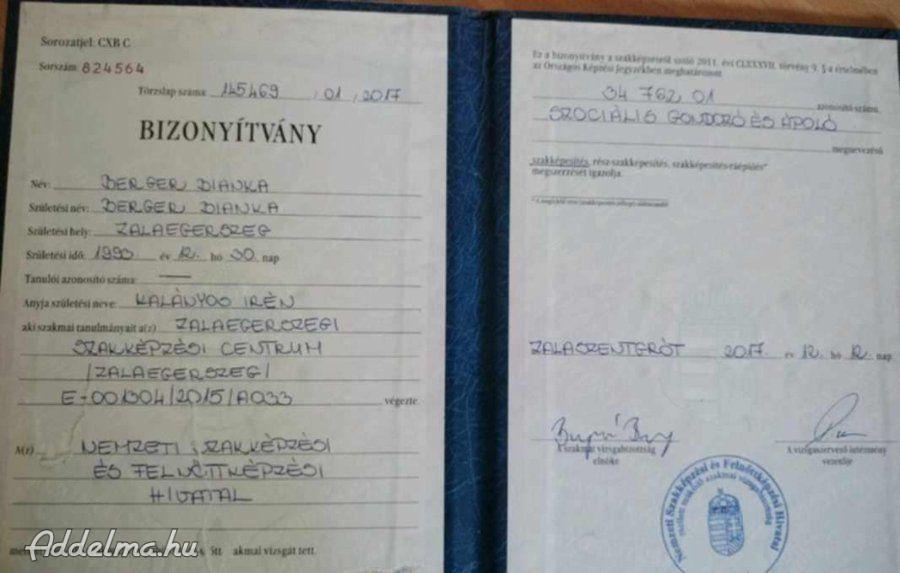 Sorozatjel: CXB C
Sorszám: 824564
Törzslap száma: 145469 /01 /2017
BIZONYÍTVÁNY
Név: BERGER DIANKA
Születési név: BERGER DIANKA
Születési hely: ZALAEGERSZEG
Születési idő: 1993 év 12. hó 30. nap
Tanulói azonosító száma: —
Anyja születési neve: KALÁNYOO IRÉN
aki szakmai tanulmányait a(z) ZALAEGERSZEGI
SZAKKÉPZÉSI CENTRUM
/ZALAEGERSZEG/
E-001304/2015/A033 végezte.
A(z) NEMZETI SZAKKÉPZÉSI
ÉS FELNŐTTKÉPZÉSI
HIVATAL
akmai vizsgát tett.
Addelma.hu
Ez a bizonyítvány a szakképzésről szóló 2011. évi CLXXXVII. törvény 9. §-a értelmében
az Országos Képzési Jegyzékben meghatározott
34 762 01 azonosító számú,
SZOCIÁLIS GONDOZÓ ÉS ÁPOLÓ
megnevezésű
szakképesítés, rész-szakképesítés, szakképesítés-ráépülés*
megszerzését igazolja.
ZALASZENTGRÓT 2017. év 12. hó 12. nap
A szakmai vizsgabizottság
elnöke
A vizsgaszervező intézmény
vezetője
Nemzeti Szakképzési és Felnőttképzési Hivatal